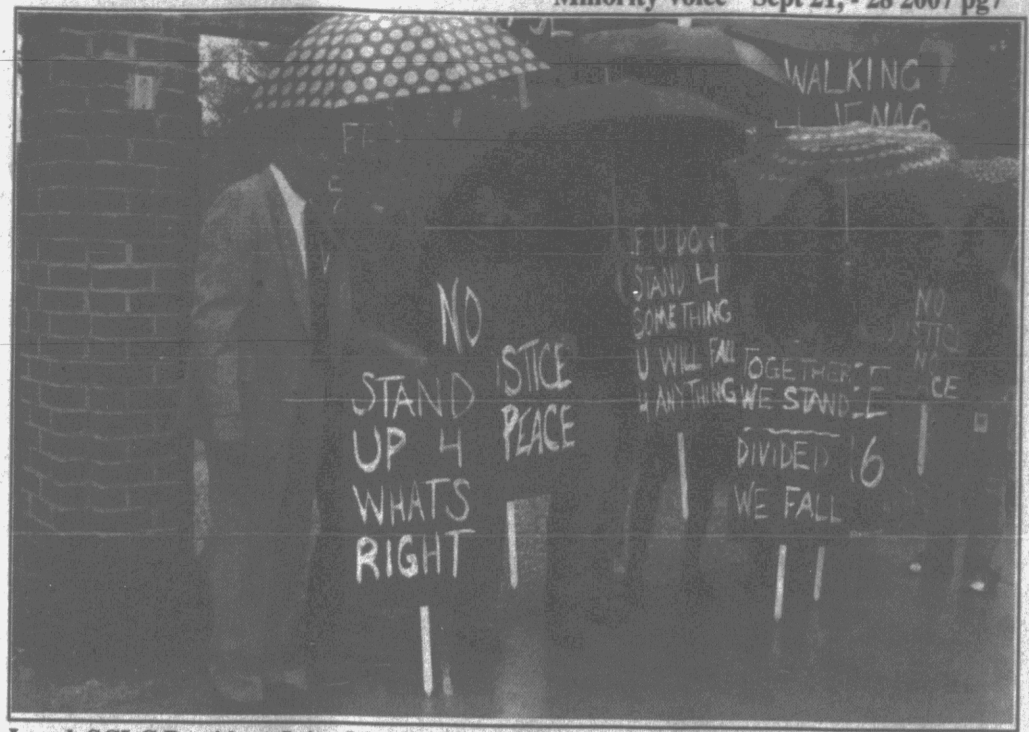 Minority Voice Sept 21, - 28 2007 pg7
WALKING
NO
STAND
UP 4
WHATS
RIGHT
STICE
PEACE
IF U DON'T
STAND 4
SOMETHING
U WILL FALL
4 ANYTHING
TOGETHER
WE STAND
DIVIDED
WE FALL
6
NO
JUSTICE
NO
CE